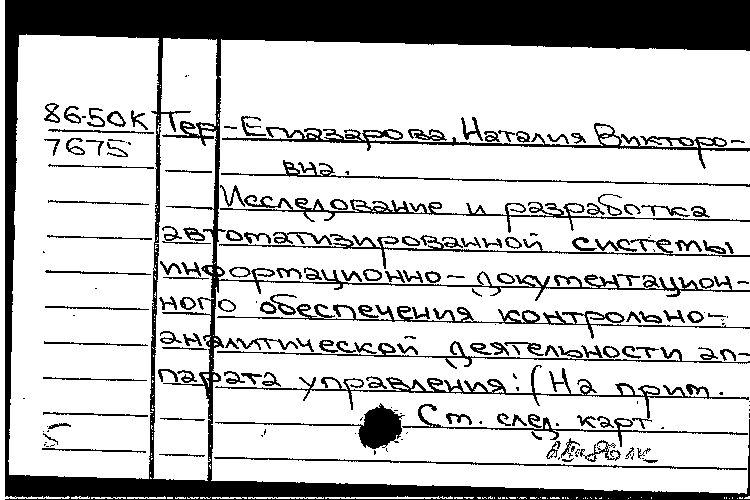 86-50К Тер-Егиазарова, Наталия Викторо-
7675 вна.
Исследование и разработка
автоматизированной системы
информационно-документацион-
ного обеспечения контрольно-
аналитической деятельности ап-
парата управления: (На прим.
См. след. карт.
5